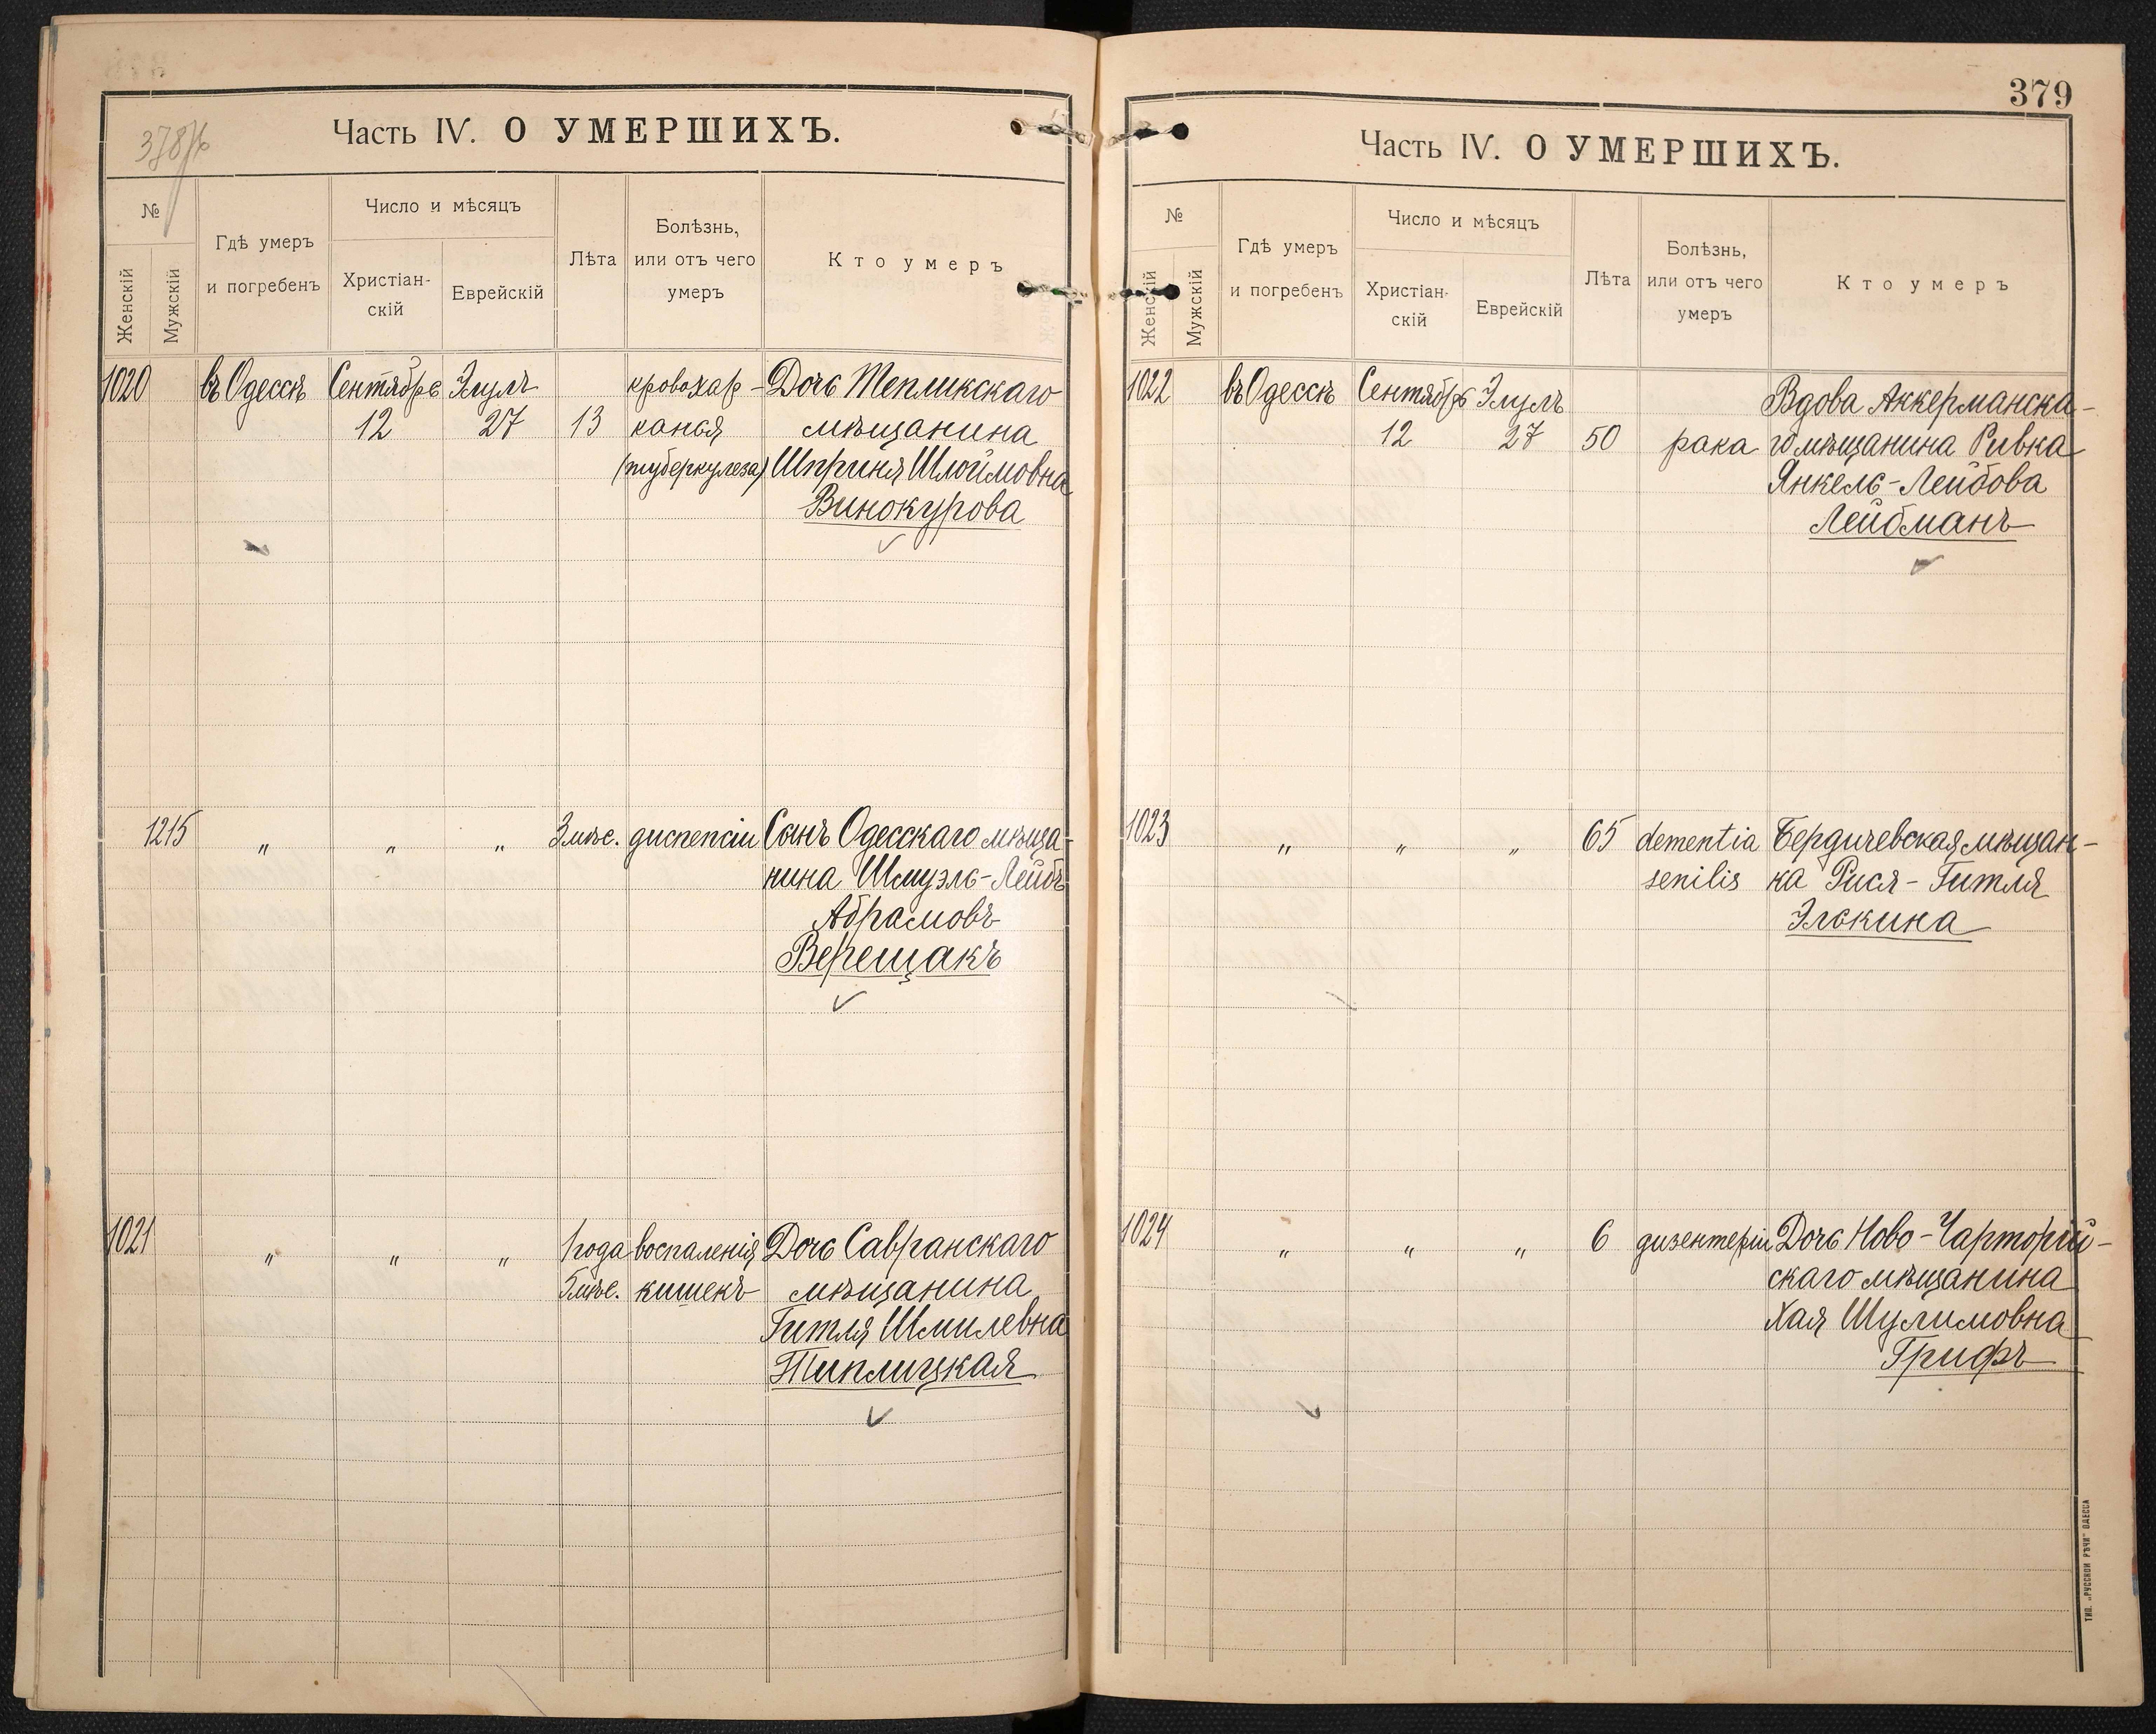 378 об
Часть IV. О УМЕРШИХЪ.
№
Женскій
Мужскій
Гдѣ умеръ
и погребенъ
Число и мѣсяцъ
Христіан-
скій
Еврейскій
Лѣта
Болѣзнь,
или отъ чего
умеръ
Кто умеръ
1020 въ Одессѣ Сентябрь Элулъ кровохар- Дочь Тепликскаго
12 27 13 канья мѣщанина
(туберкулеза) Шприня Шлоймовна
Винокурова
1215 " " " 3 мѣс. диспепсіи Сынъ Одесскаго мѣща-
нина Шмуэль-Лейбъ
Абрамовъ
Верещакъ
1021 " " " 1 года воспаленія Дочь Савранскаго
5 мѣс. кишекъ мѣщанина
Гитля Шмилевна
Типлицкая
379
Часть IV. О УМЕРШИХЪ.
№
Женскій
Мужскій
Гдѣ умеръ
и погребенъ
Число и мѣсяцъ
Христіан-
скій
Еврейскій
Лѣта
Болѣзнь,
или отъ чего
умеръ
Кто умеръ
1022 въ Одессѣ Сентябрь Элулъ Вдова Аккерманска-
12 27 50 рака го мѣщанина Ривка
Янкель-Лейбова
Лейбманъ
1023 " " " 65 dementia Бердичевская мѣщан-
senilis ка Рися-Гитля
Элькина
1024 " " " 6 дизентеріи Дочь Ново-Чарторій-
скаго мѣщанина
Хая Шулимовна
Грифъ
ТИП. „РУССКОЙ РѢЧИ" ОДЕССА